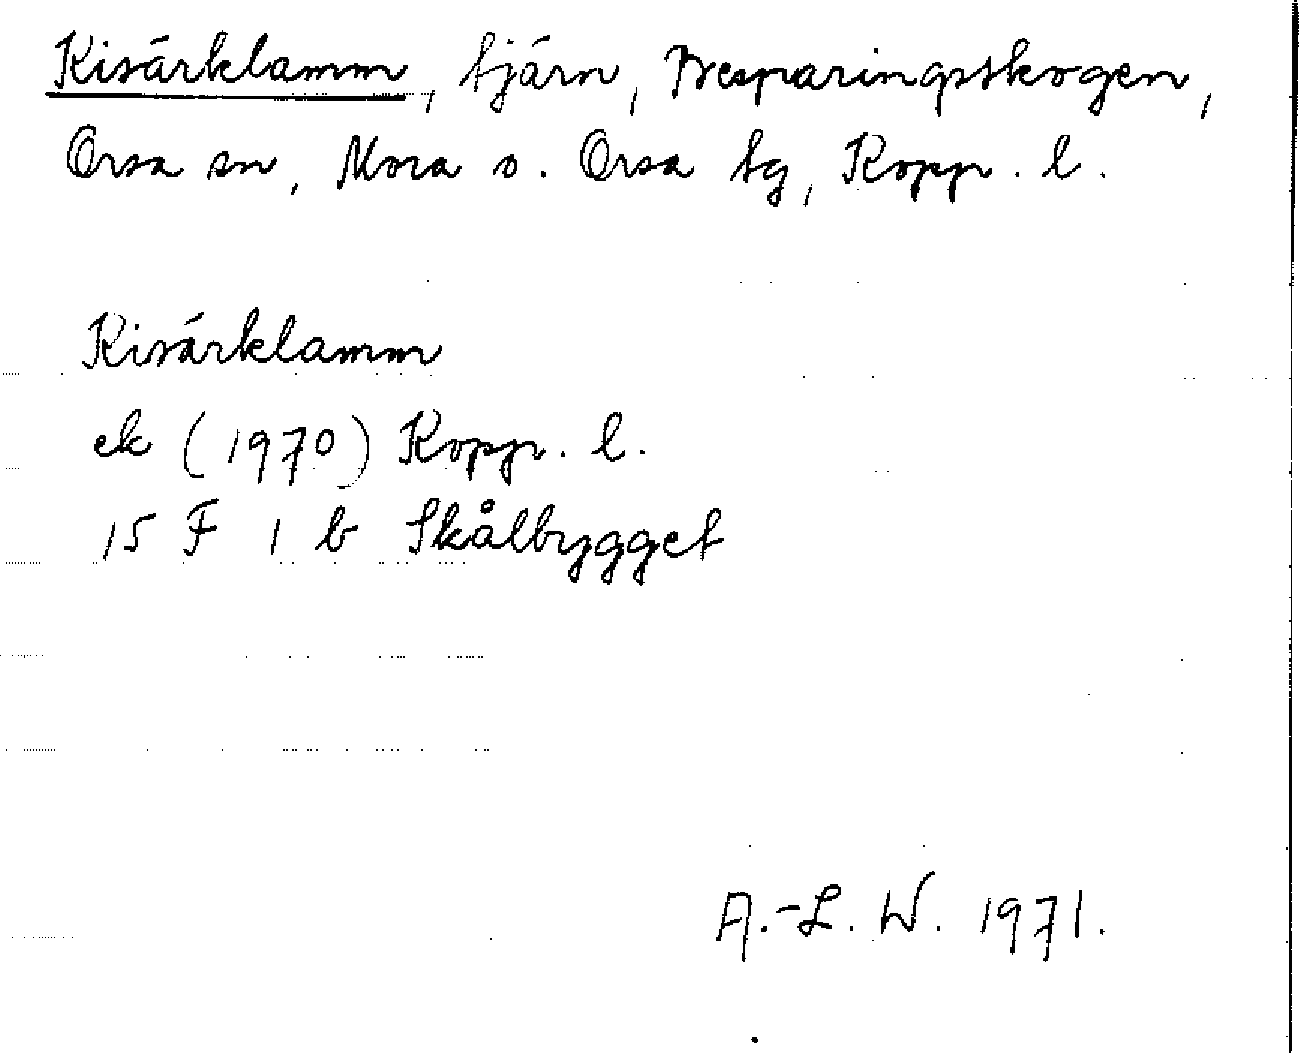 Kisärklamm, tjärn, Besparingsskogen,
Orsa sn, Mora o. Orsa tg, Kopp. l.
Kisärklamm
ek (1970) Kopp. l.
15 F 1 b Skålbygget
A.-L. W. 1971.